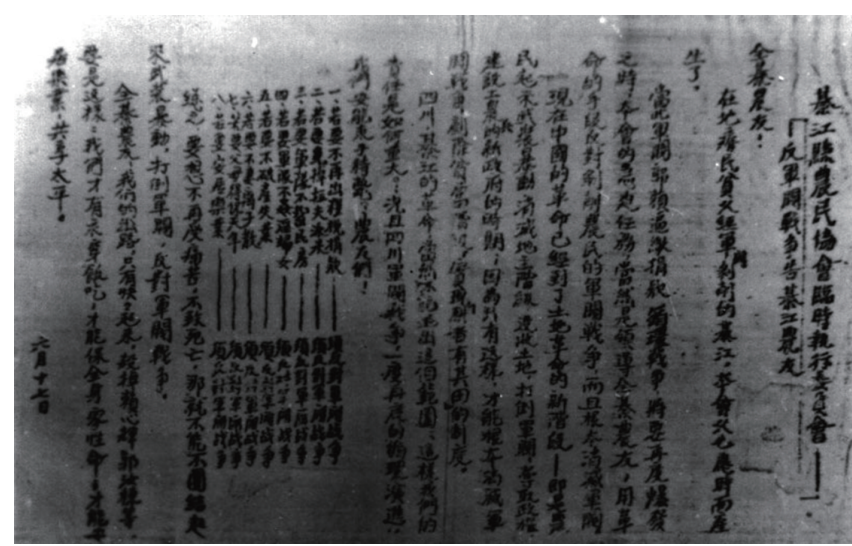 綦江縣農民協會臨時執行委員會——
「反軍閥戰爭告綦江農友」
全綦農友：
在地瘠民貧又經軍閥剝削的綦江，本會又已應時而產
生了。
當此軍閥郭賴逼派捐款，戰爭將要再度爆發
之時，本會的無如任務，當然是領導全綦農友，用革
命的手段反對剝削農民的軍閥戰爭，而且根本消滅
現在中國的革命已經到了土地革命的新階段——即是農
民起來武裝暴動，消滅地主階級，沒收土地，打倒軍閥，奪取政權
建設工農的新政府的時期；因為只有這樣，才能根本消滅軍
閥戰爭，剷除
四川，綦江的革命，當然不能逃出這個範圍，這樣我們的
責任是如何重大；況且四川軍閥戰爭一度再度的演進，
我們 農友們！
一、若要不再出租稅捐款——須反對軍閥戰爭
二、若要免得拉夫派差——須反對軍閥戰爭
三、若要軍隊不駐民房——須反對軍閥戰爭
四、若要軍隊不姦淫婦女——須反對軍閥戰爭
五、若要不破產失業——須反對軍閥戰爭
六、若要不妻離子散——須反對軍閥戰爭
七、若要父母得終天年——須反對軍閥戰爭
八、若要安居樂業——須反對軍閥戰爭
總之，要想不再度痛苦，不致死亡，那就不能不團結起
來武裝暴動，打倒軍閥，反對軍閥戰爭。
全綦農友，我們的出路，只有快起來
要是這樣，我們才有衣穿飯吃，才能保全身家性命，才能安
居樂業，共享太平。
六月十七日